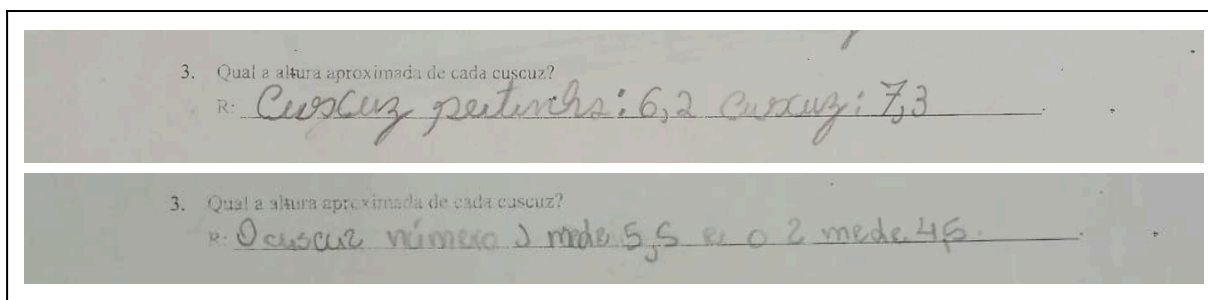 3. Qual a altura aproximada de cada cuscuz?
R: Cuscuz peitinho: 6,2 cuscuz: 7,3
3. Qual a altura aproximada de cada cuscuz?
R: O cuscuz número 1 mede 5,5 e o 2 mede 4,5.